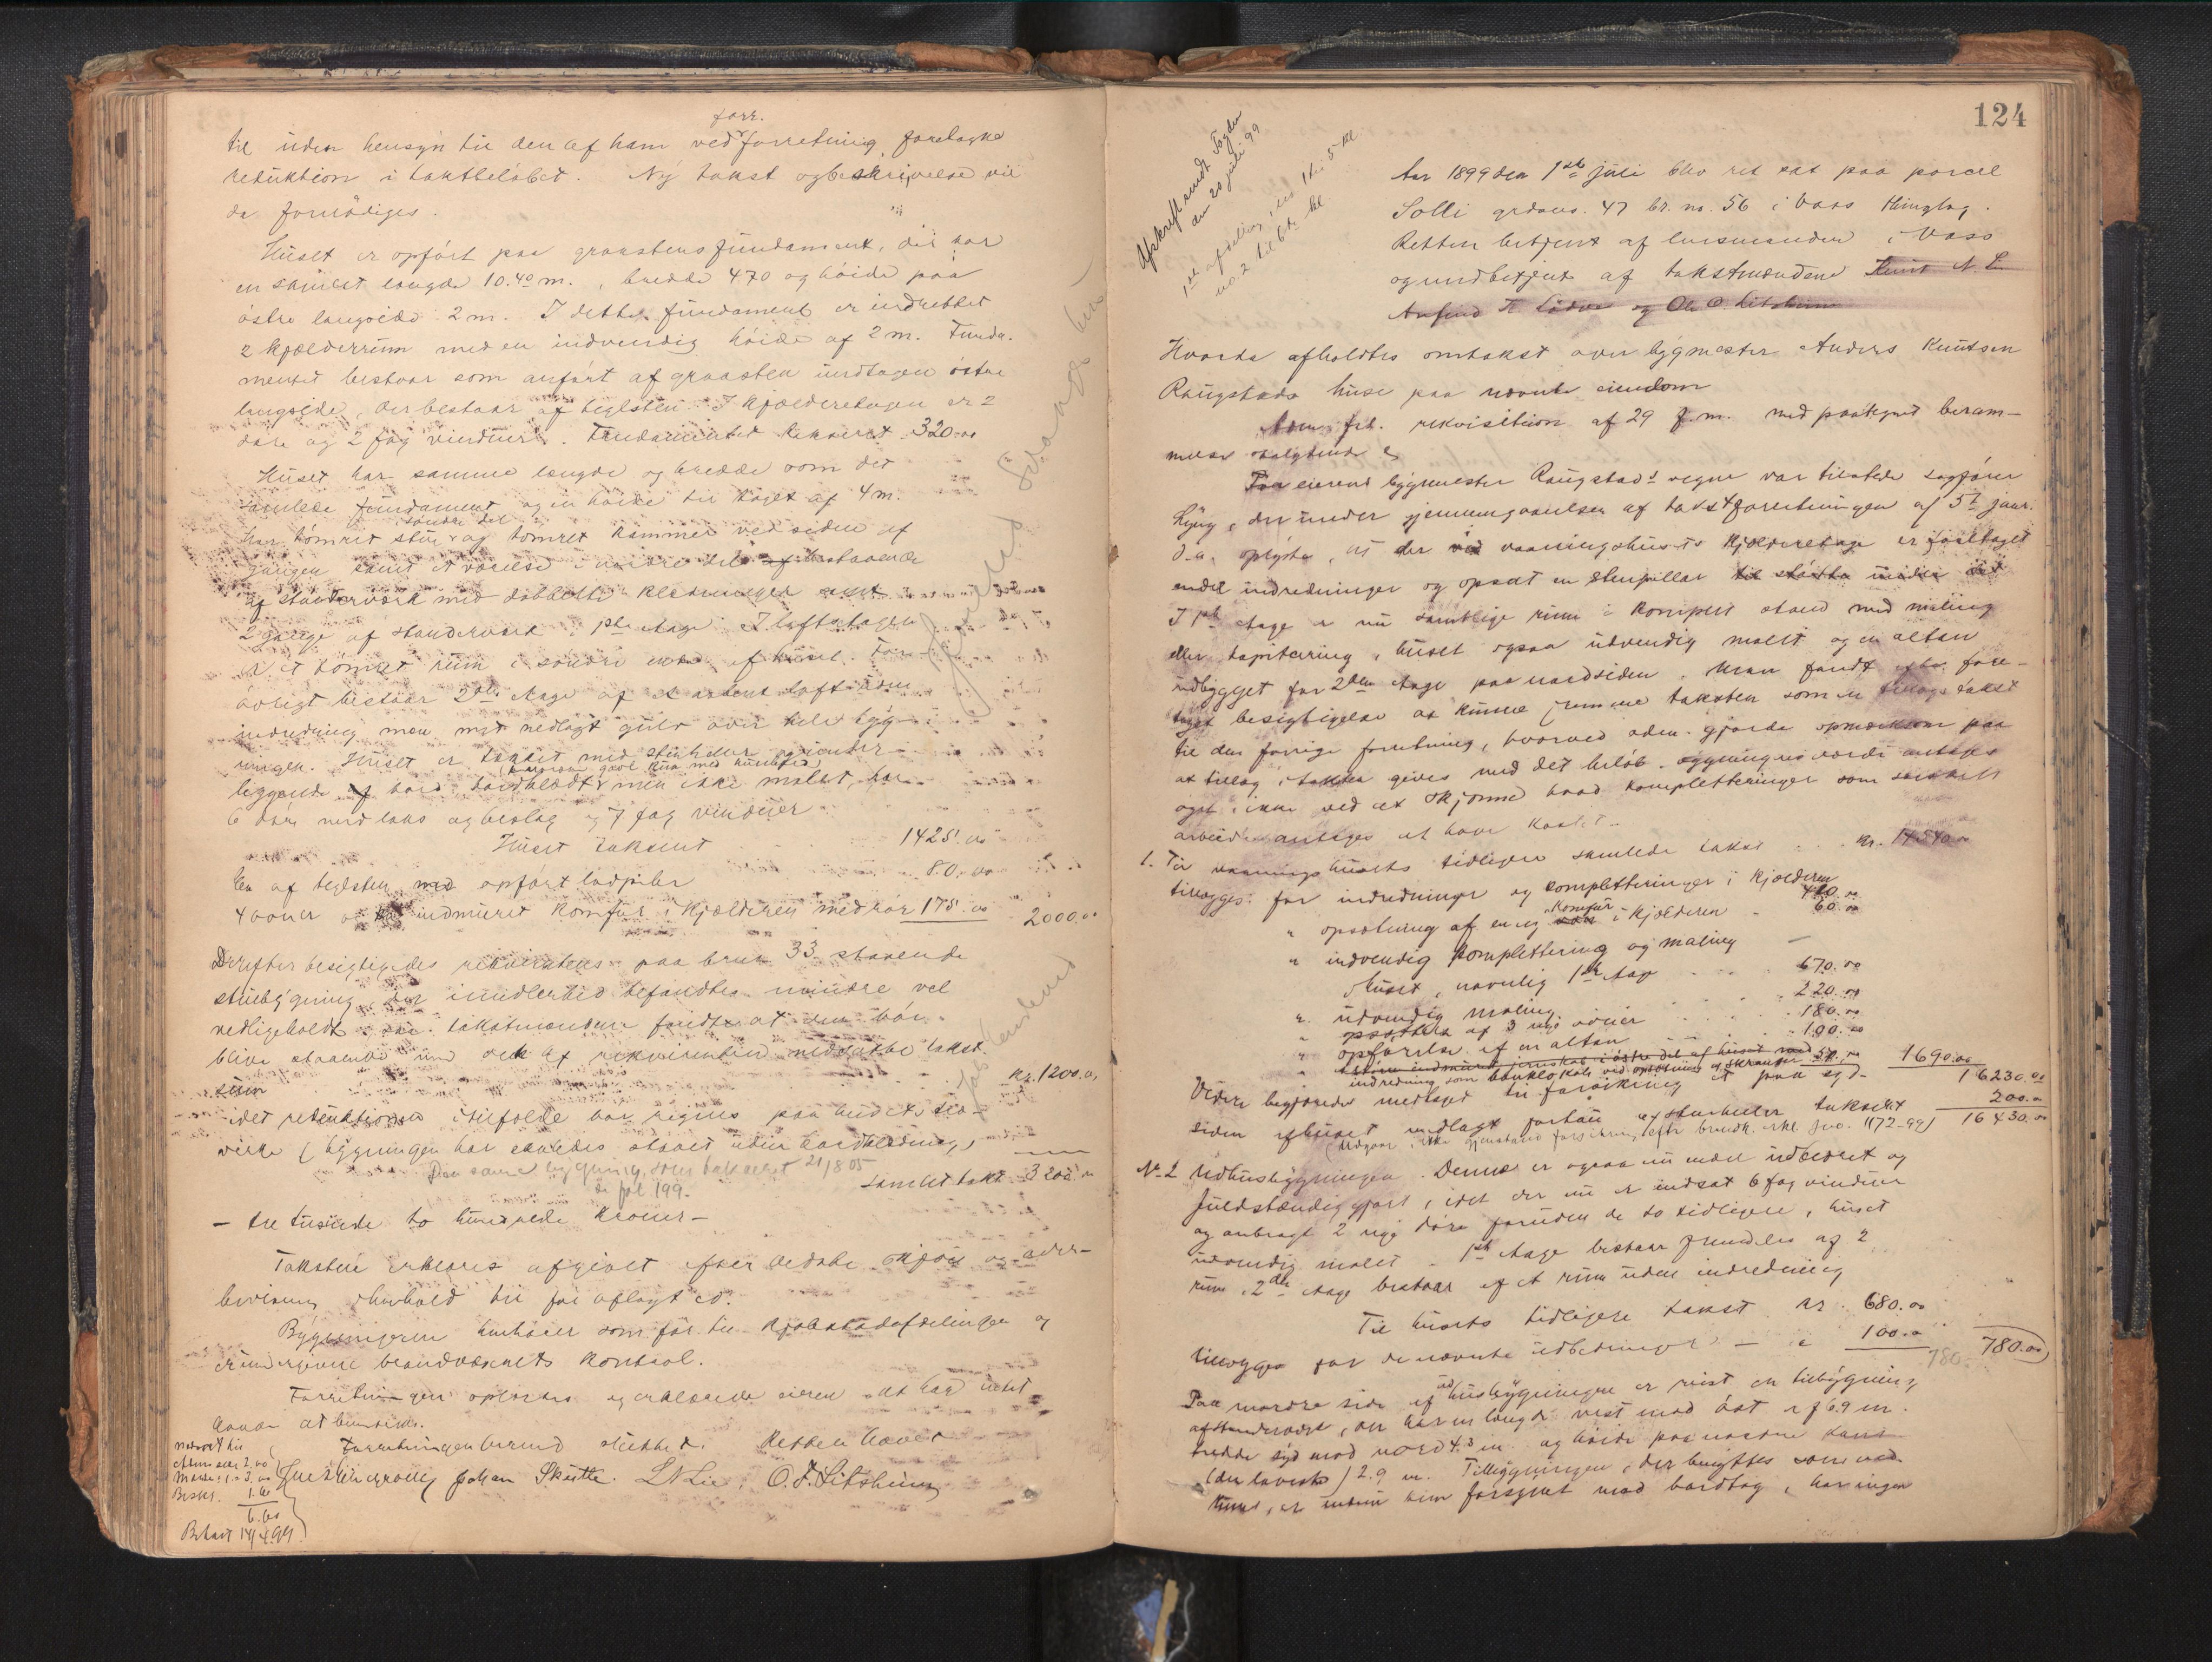 forr.
til uden hensyn til den af ham ved forretning foretagne
reduktion i takstbeløbet. Ny takst og beskrivelse vil
da fornødiges.
Huset er opført paa graastensfundament, der har
en samlet længde 10.40 m., bredde 4.70 og høide paa
østre langside 2 m. I dette fundament er indrettet
2 kjælderrum med en indvendig høide af 2 m. Funda-
mentet bestaar som anført af graasten undtagen østre
langside, der bestaar af teglsten. I kjælderetagen er 2
døre og 2 fag vinduer. Fundamentet takseret 320.00
Huset har samme længde og bredde som det
samlede fundament og en høide til taget af 4 m.
søndre del
har tømret stue og tømret kammer ved siden af
gangen samt et værelse i nordre del bestaaende
af stænderværk med dobbelte klædninger samt
2 gange af stænderværk i 1ste etage. I loftsetagen
er et tømret rum i søndre ende af huset. For
øvrigt bestaar 2den etage af et aabent loft uden
indredning, men med nedlagt gulv over hele byg-
ningen. Huset er tækket med stenheller
liggende bord bordklædt men ikke malet, har
6 døre med laas og beslag og 7 fag vinduer
Huset takseret 1425.00
En af teglsten opført lodpibe 80.00
4 ovner og indmuret komfur i kjælderen med rør 175.00 2000.00
Derefter besigtigedes rekvirentens paa bruk 33 staaende
stuebygning, der imidlertid befandtes mindre vel
vedligeholdt saa takstmændene fandt at den bør
blive staaende ved den af rekvirenten nedsatte takst-
sum kr. 1200.00
idet reduktionen i tilfælde bør regnes paa husets træ-
verk (bygningen har saaledes staaet uden bordklædning)
Den samme bygning 21/8 05
se fol 199.
samlet takst 3200.00
– tre tusinde to hundrede kroner –
Taksten erklæres afgivet efter bedste skjøn og over-
bevisning i henhold til før aflagt ed.
Bygningerne henhører som før til kjøbstadafdelingen og
er undergivne brandvæsenets kontrol.
Forretningen oplæstes og erklærede eieren at han intet
havde at bemærke.
Forretningen dermed sluttet. Retten hævet
Johan Skutle. L N Lie. O. T. Litsheim
1.60
6.60
Betalt 14/4 99
124
Afskrift sendt Fogden
den 20 juli 99
1ste afdeling, no. 1 til 5 kl
no. 2 til 6te kl
Aar 1899 den 1ste juli blev ret sat paa parcel
Solli grdsno. 47 br. no. 56 i Voss thinglag.
Retten betjent af lensmanden i Voss
og medbetjent af takstmændene Knut N. L
og Ole O. Litsheim
Hvorda afholdtes omtakst over bygmester Anders Knutsen
Raugstads huse paa nævnte eiendom
frt. rekvisition af 29 f.m. med paategnet beram-
melse
Paa eierens bygmester Raugstads vegne var tilstede sagfører
Lyng, der under gjennemgaaelsen af takstforretningen af 5te januar
d.a. oplyste, at der ved vaaningshusets kjælderetage er foretaget
endel indredninger og opsat en stenpillar til støtte under
I 1ste etage er nu samtlige rum i komplet stand med maling
eller tapitsering, huset ogsaa udvendig malet og en altan
udbygget for 2den etage paa nordsiden. Man fandt efter fore-
taget besigtigelse at kunne fremme taksten som en tillægstakst
til den forrige forretning, hvorved gjorde opmærksom paa
at tillæg i taksten gives med det beløb bygningens værdi antages
øget, ikke ved et skjøn hvad kompletteringer som særskilt
arbeide antages at have kostet.
1. Til vaaningshusets tidligere samlede takst kr. 14540.00
tillægges: for indredninger og kompletteringer i kjælderen 410.00
" opsætning af en ny komfur i kjælderen 60.00
" indvendig komplettering og maling
i huset, navnlig 1ste etage 670.00
" udvendig maling 220.00
" opsættelse af 3 nye ovner 180.00
" opførelse af en altan 100.00
" indredning som banklokale ved opsætning af skranke 50.00 1690.00
16230.00
Videre begjæredes medtaget til forsikring et paa syd-
siden af huset nedlagt fortau af stenheller takseret 200.00
(Udgaar, ikke gjenstand forsikring efter brandk. erkl. jno. 1172-99) 16430.00
No. 2 Udhusbygningen. Denne er ogsaa nu endel udbedret og
fuldstændiggjort, idet der nu er indsat 6 fag vinduer
og anbragt 2 nye døre foruden de to tidligere, huset
udvendig malet. 1ste etage bestaar fremdeles af 2
rum. 2den etage bestaar af et rum uden indredning
Til husets tidligere takst kr. 680.00
tillægges for de nævnte udbedringer – " 100.00 780.00
780.
Paa nordre side af udhusbygningen er reist en tilbygning
af stænderverk, der har en længde vest mod øst af 6.9 m.
bredde syd mod nord 4.3 m. og høide paa nordre kant
(den laveste) 2.9 m. Tilbygningen, der benyttes som ved-
hus, er forsynet med bordtag, har ingen